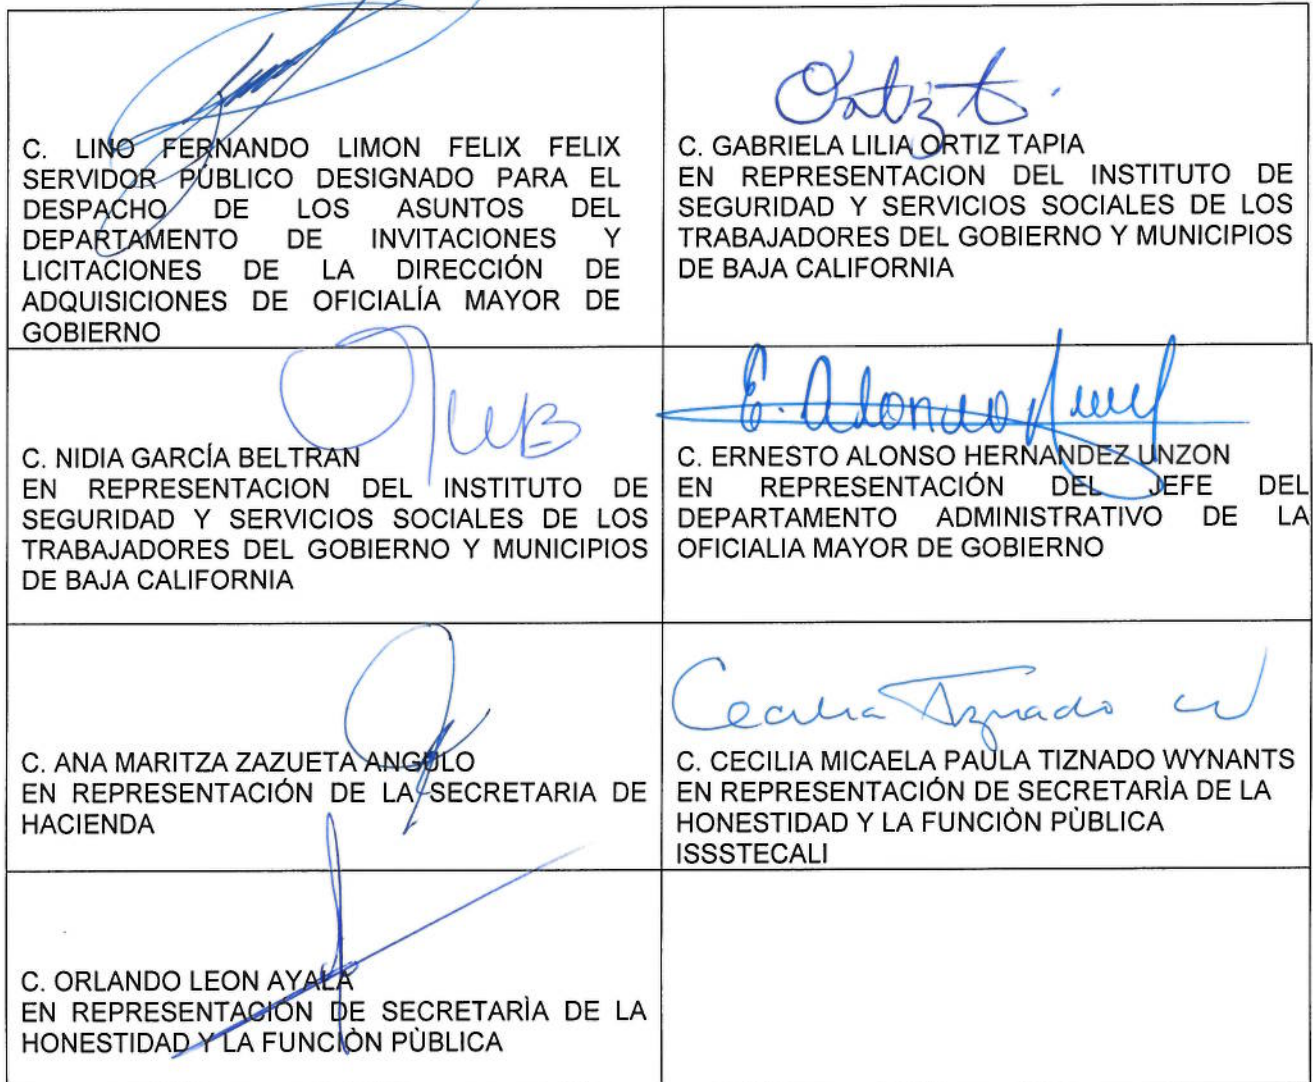 C. LINO FERNANDO LIMON FELIX FELIX
SERVIDOR PÚBLICO DESIGNADO PARA EL
DESPACHO DE LOS ASUNTOS DEL
DEPARTAMENTO DE INVITACIONES Y
LICITACIONES DE LA DIRECCIÓN DE
ADQUISICIONES DE OFICIALÍA MAYOR DE
GOBIERNO
Ortiz t.
C. GABRIELA LILIA ORTIZ TAPIA
EN REPRESENTACION DEL INSTITUTO DE
SEGURIDAD Y SERVICIOS SOCIALES DE LOS
TRABAJADORES DEL GOBIERNO Y MUNICIPIOS
DE BAJA CALIFORNIA
C. NIDIA GARCÍA BELTRAN
EN REPRESENTACION DEL INSTITUTO DE
SEGURIDAD Y SERVICIOS SOCIALES DE LOS
TRABAJADORES DEL GOBIERNO Y MUNICIPIOS
DE BAJA CALIFORNIA
E. Alonso
C. ERNESTO ALONSO HERNANDEZ UNZON
EN REPRESENTACIÓN DEL JEFE DEL
DEPARTAMENTO ADMINISTRATIVO DE LA
OFICIALIA MAYOR DE GOBIERNO
C. ANA MARITZA ZAZUETA ANGULO
EN REPRESENTACIÓN DE LA SECRETARIA DE
HACIENDA
Cecilia Tiznado W
C. CECILIA MICAELA PAULA TIZNADO WYNANTS
EN REPRESENTACIÓN DE SECRETARÌA DE LA
HONESTIDAD Y LA FUNCIÒN PÙBLICA
ISSSTECALI
C. ORLANDO LEON AYALA
EN REPRESENTACIÓN DE SECRETARÌA DE LA
HONESTIDAD Y LA FUNCIÒN PÙBLICA